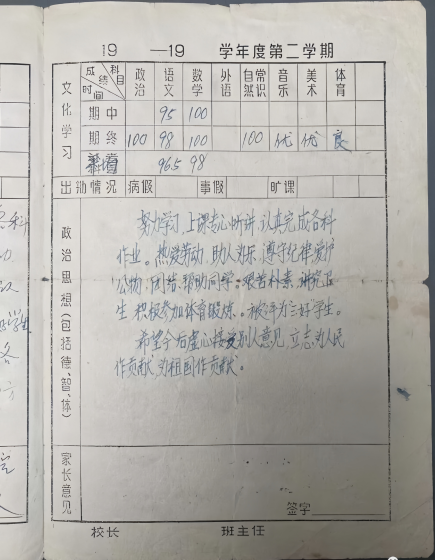 19 —19 学年度第二学期
文化学习 成绩 科目 时间 政治 语文 数学 外语 自然常识 音乐 美术 体育
期中 95 100
期终 100 98 100 100 优 优 良
96.5 98
出勤情况 病假 事假 旷课
政治思想(包括德、智、体)
努力学习,上课专心听讲,认真完成各科
作业。热爱劳动,助人为乐,遵守纪律,爱护
公物,团结、帮助同学,艰苦朴素,讲究卫
生,积极参加体育锻炼。被评为三好学生。
希望今后虚心接受别人意见,立志为人民
作贡献,为祖国作贡献。
家长意见
签字
校长 班主任